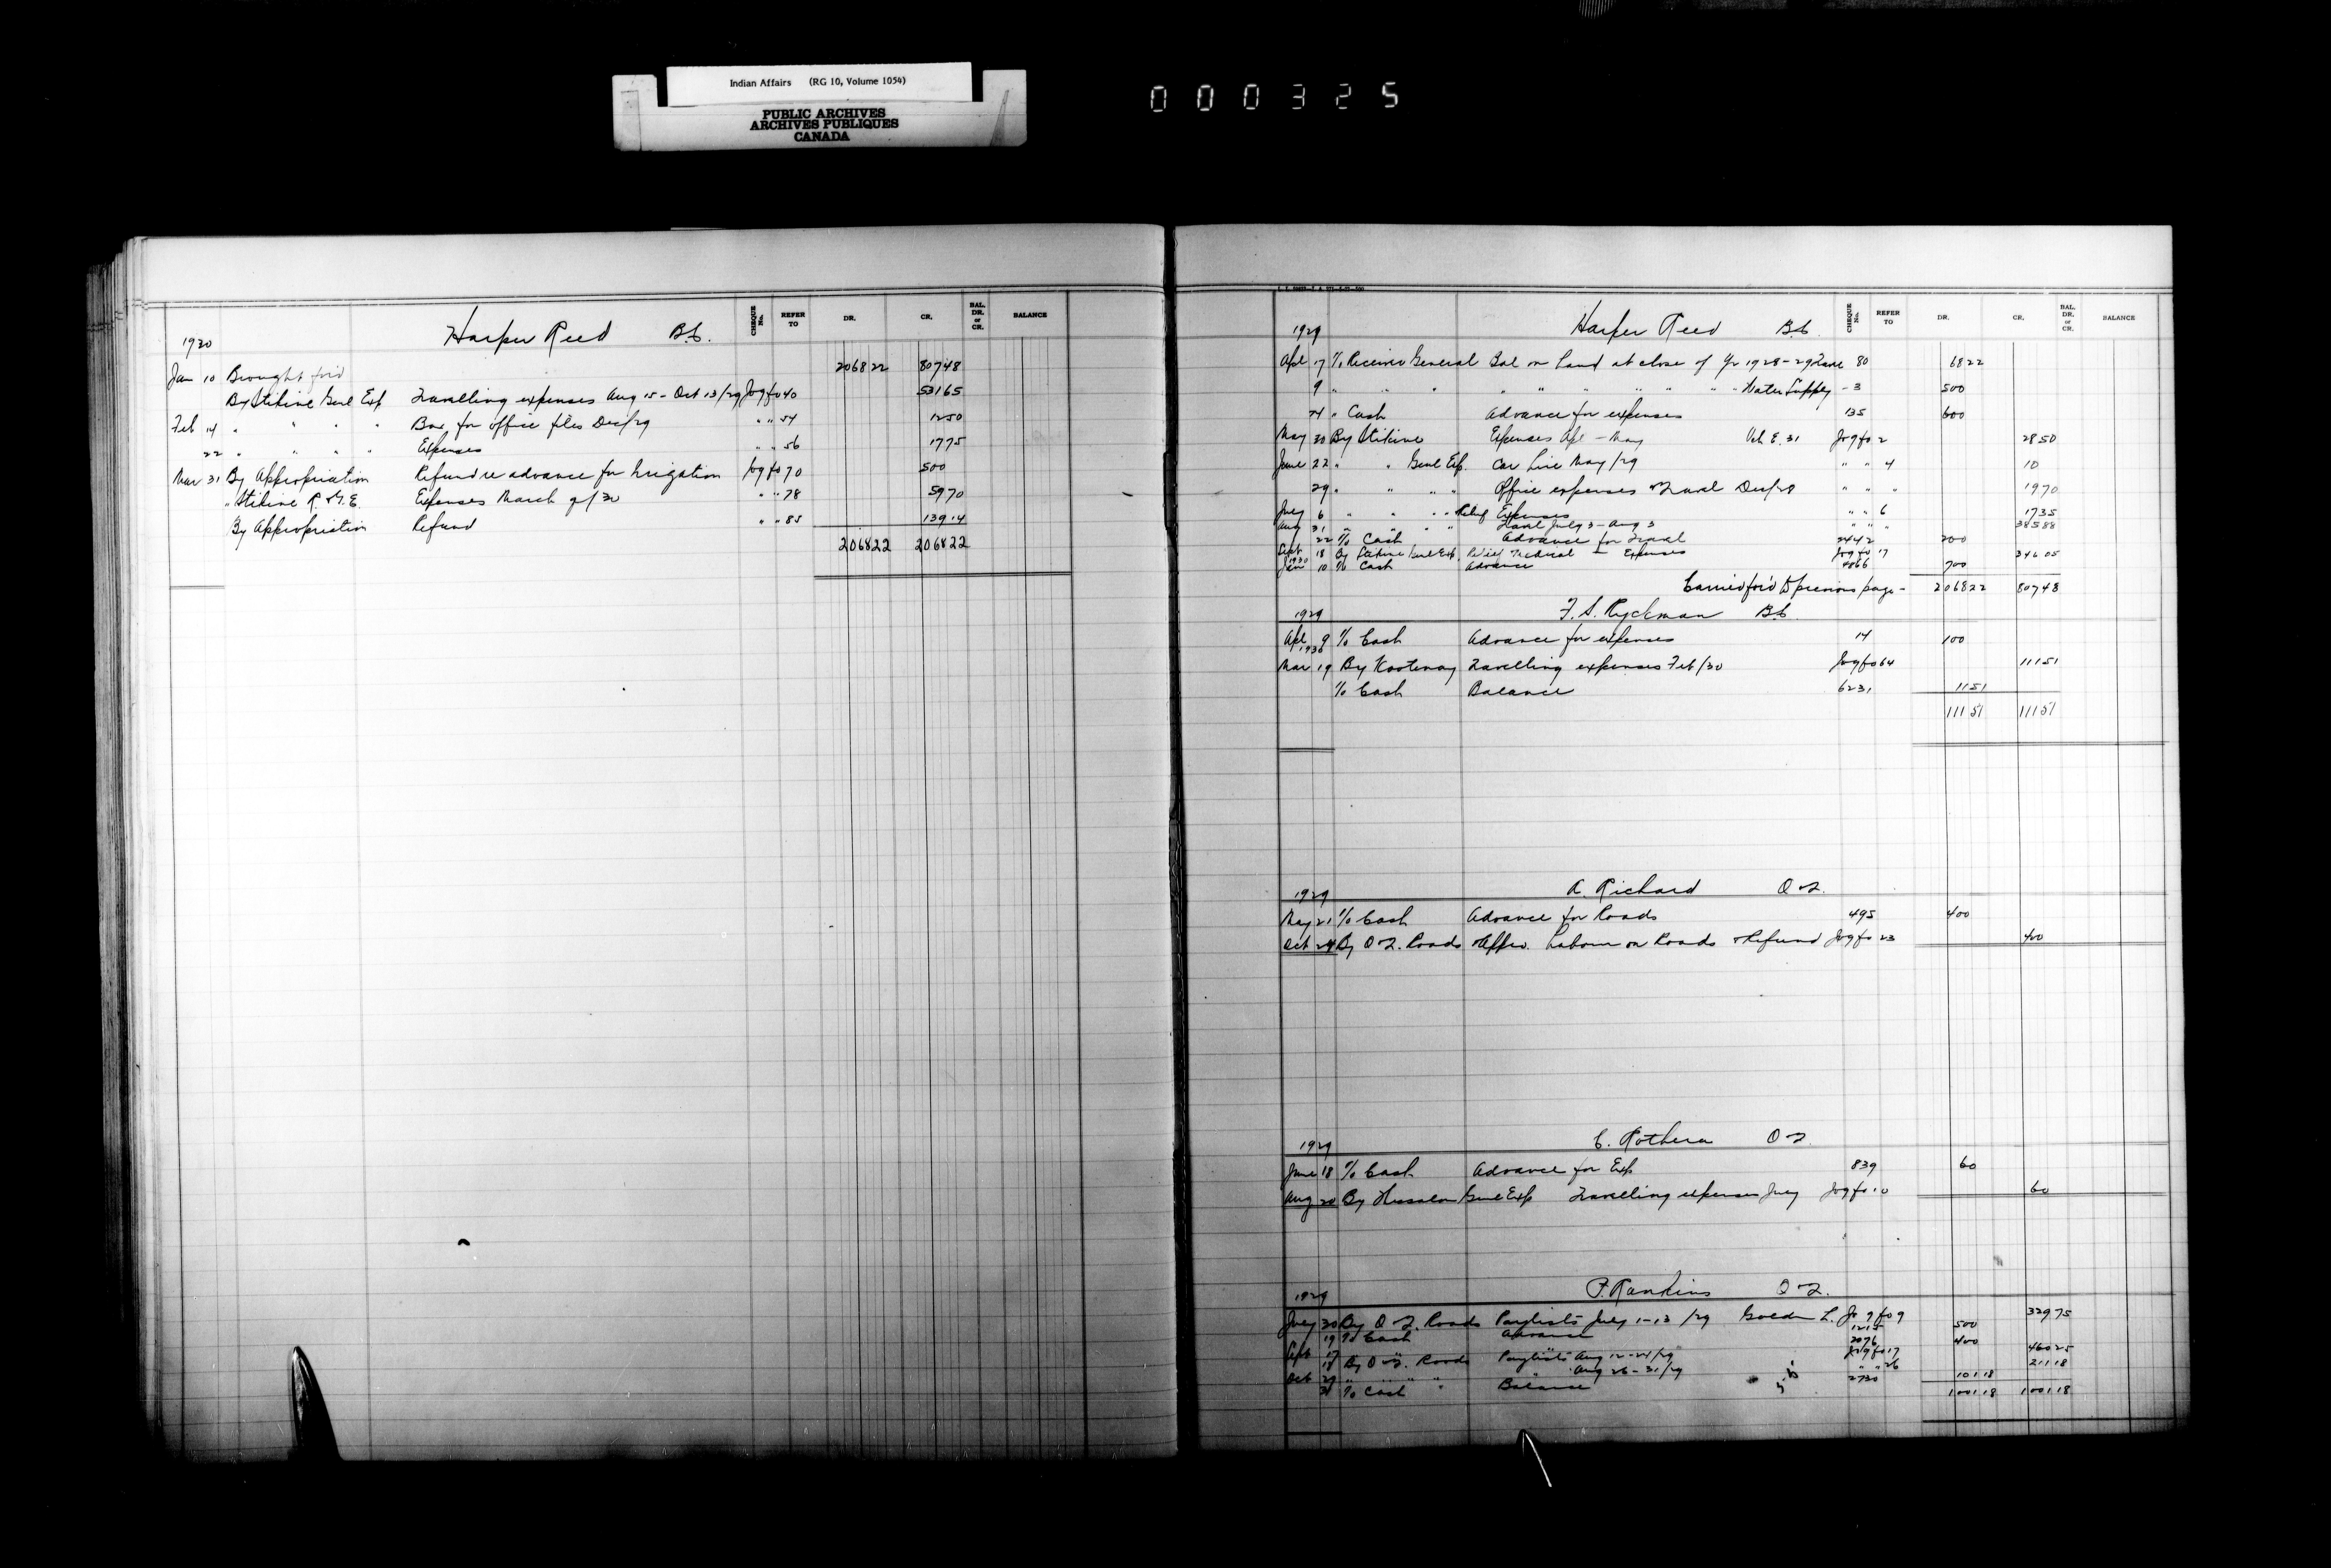 Indian Affairs (RG 10, Volume 1054)
PUBLIC ARCHIVES
ARCHIVES PUBLIQUES
CANADA
000325
CHEQUE No. REFER TO DR. CR. BAL. DR. or CR. BALANCE
1930 Harper Reed B.C.
Jan 10 Brought for'd 2068 22 807 48
By Stikine Genl Exp Travelling expenses Aug 15 - Oct 13/29 Jog fo 40 531 65
Feb 14 " " " " Box for office files Dec/29 " " 54 12 50
22 " " " " Expenses " " 56 17 75
Mar 31 By Appropriation Refund re advance for Irrigation Jog fo 70 500
" Stikine R. & G.E. Expenses March 9/30 " " 78 59 70
By Appropriation Refund " " 85 139 14
2068 22 2068 22
CHEQUE No. REFER TO DR. CR. BAL. DR. or CR. BALANCE
1929 Harper Reed B.C.
Apl 17 To Receiver General Bal on hand at close of Yr 1928-29 Travel 80 68 22
9 " " " " " " " " " " Water Supply - 3 500
24 " Cash Advance for expenses 135 600
May 30 By Stikine Expenses Apl - May Vch E. 31 Jog fo 2 28 50
June 22 " " Genl Exp. Car hire May/29 " " 4 10
29 " " " " Office expenses & Travel Dec/28 " " " 19 70
July 6 " " " " Relief Expenses " " 6 17 35
Aug 31 " " " " Travel July 3 - Aug 3 " " " 385 88
22 To Cash Advance for Travel 2442 200
Sept 18 By Stikine Genl Exp. Relief Medical - Expenses Jog fo 17 346 05
1930
Jan 10 To Cash Advance 4866 700
Carried for'd to previous page - 2068 22 807 48
1929 F. S. Ryckman B.C.
Apl 9 To Cash Advance for expenses 14 100
1930
Mar 19 By Kootenay Travelling expenses Feb/30 Jog fo 64 111 51
To Cash Balance 6231 11 51
111 51 111 51
1929 A. Richard O & Q.
May 21 To Cash Advance for Roads 495 400
Oct 24 By O & Q. Roads & Appro. Labour on Roads & Refund Jog fo 23 400
1929 C. Rothera O & Q.
June 18 To Cash Advance for Exp 839 60
Aug 20 By Genl Exp Travelling expenses July Jog fo 10 60
1929 P. Rankins O & Q.
July 30 By O & Q. Roads Paylists July 1-13/29 Golden L. Jog fo 9 329 75
19 To Cash Advance 1215 500
Sept 17 " " " 2076 400
18 By O & Q. Roads Paylists Aug 12-24/29 Jog fo 17 460 25
Oct 29 " " " " " Aug 26-31/29 " " 26 211 18
31 To Cash Balance 2730 101 18
1001 18 1001 18